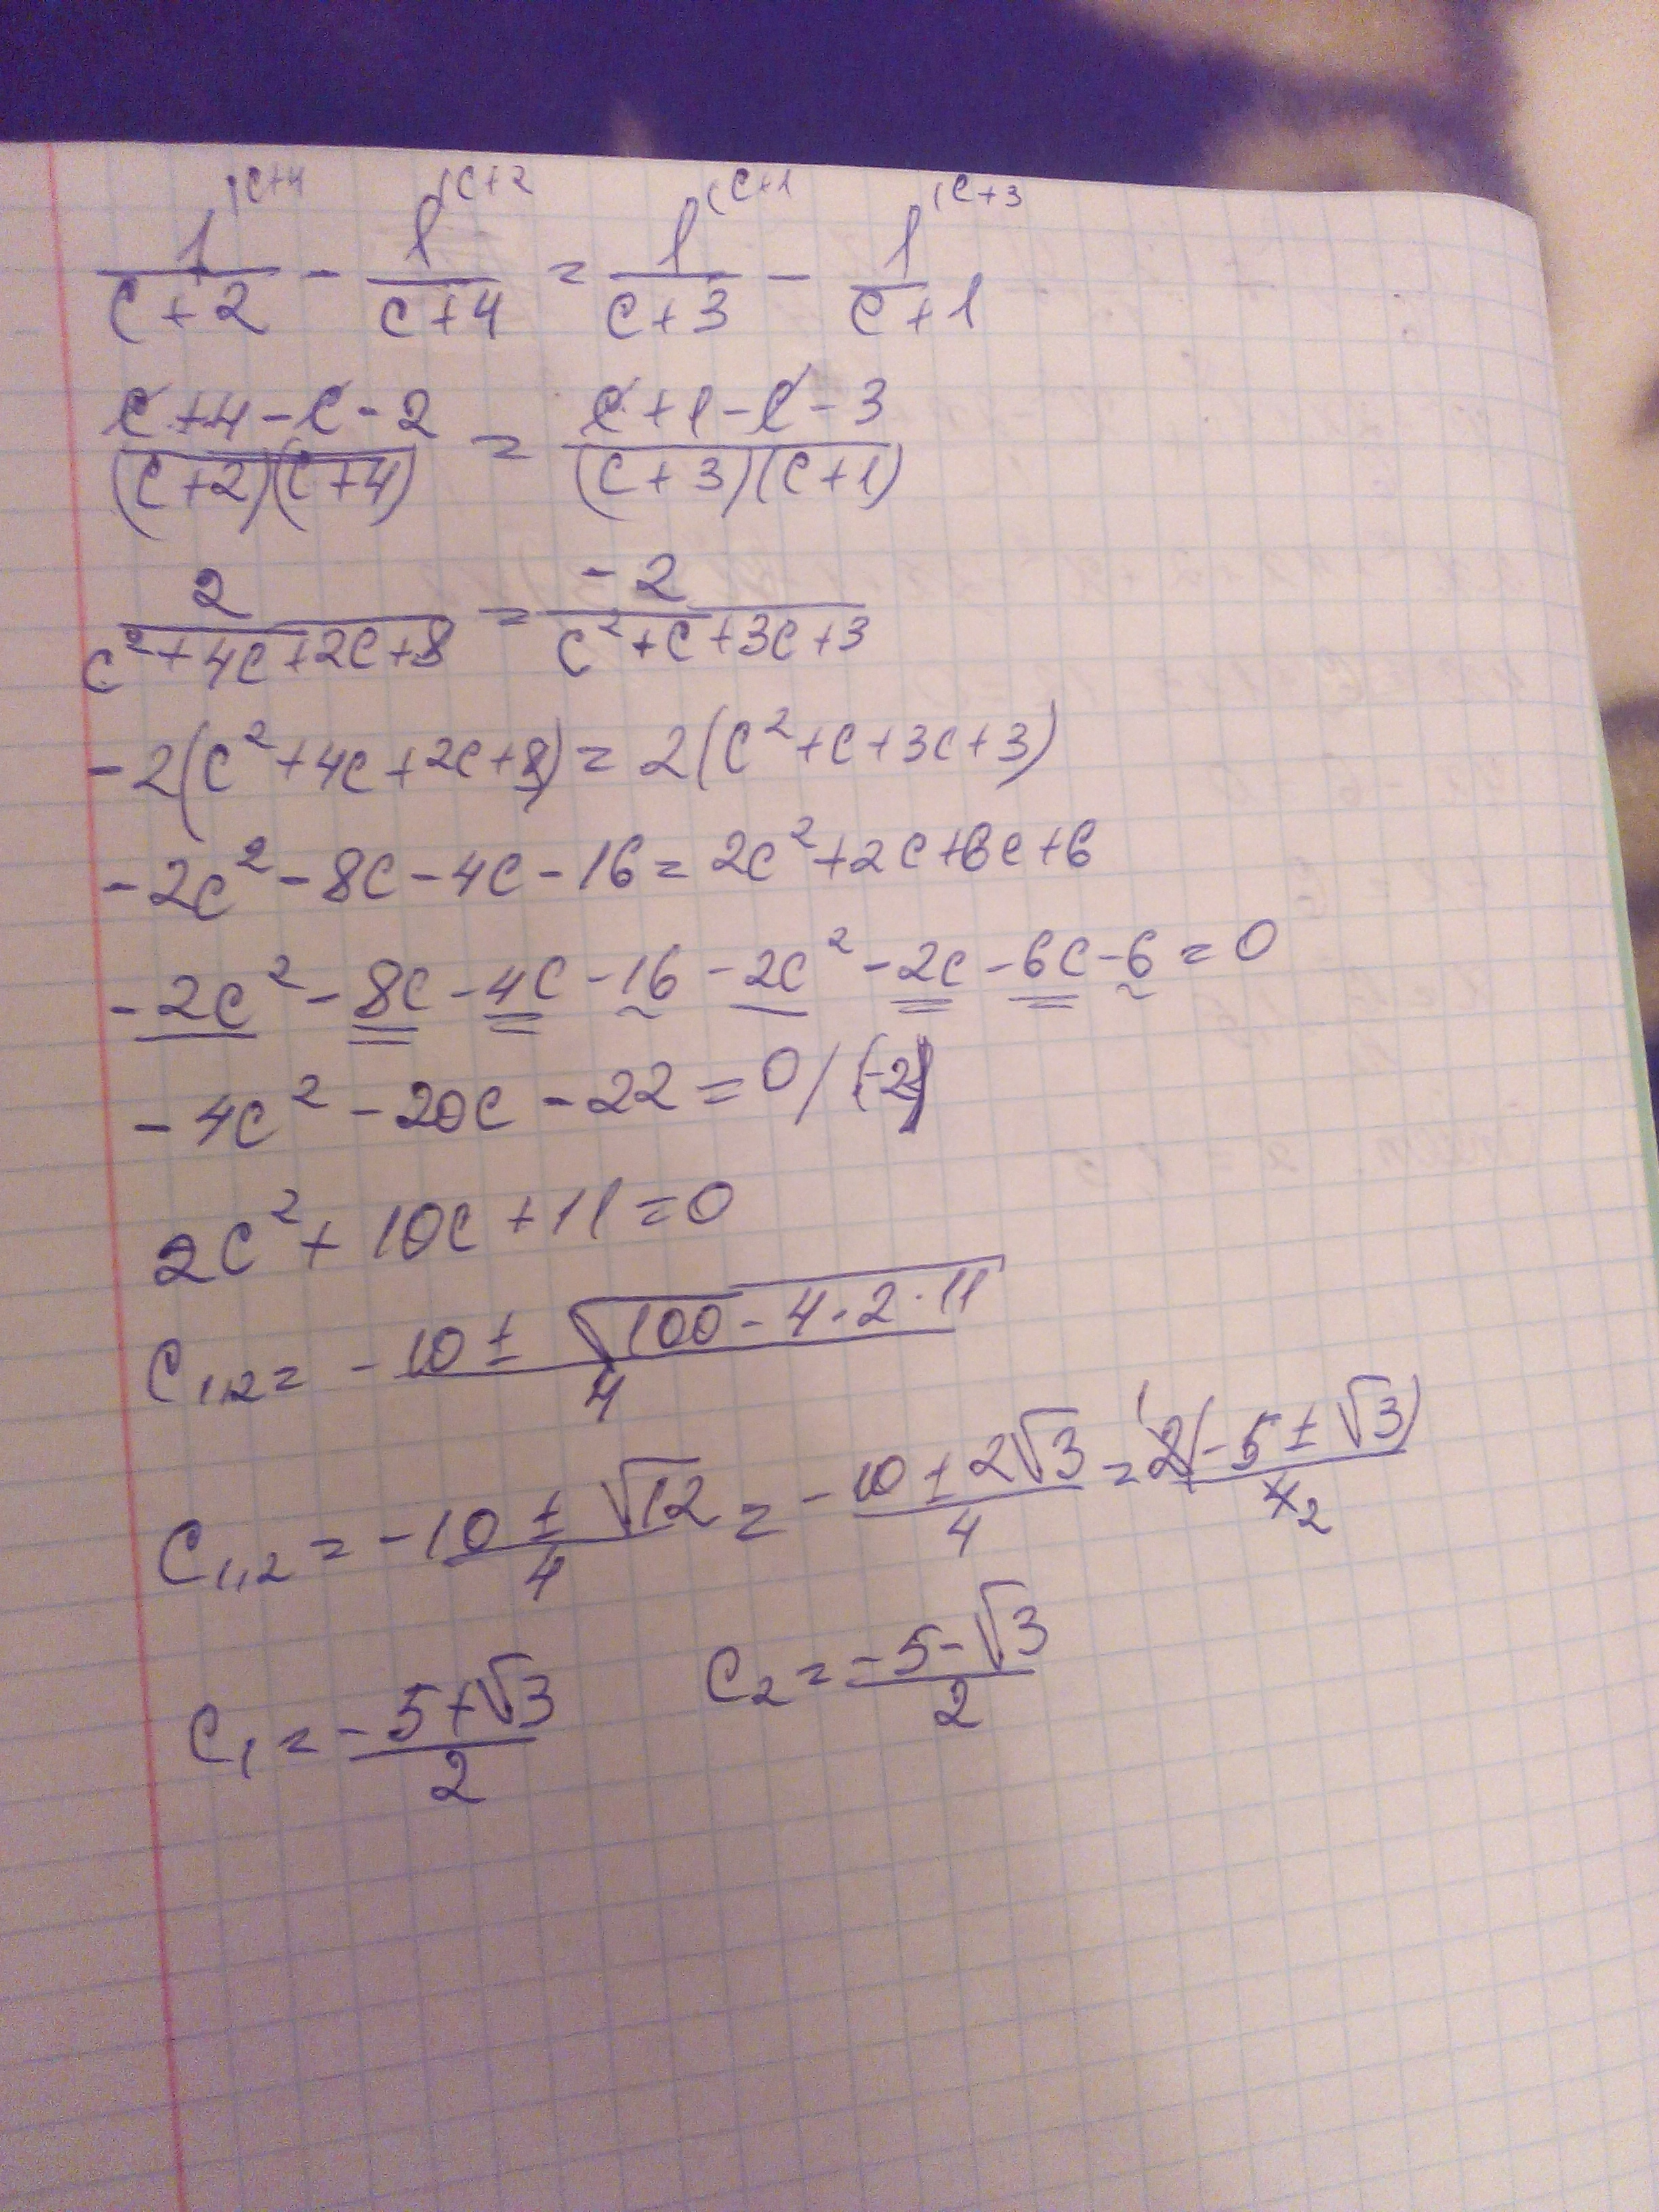 1^(c+4 / c+2 - 1^(c+2 / c+4 = 1^(c+1 / c+3 - 1^(c+3 / c+1
c+4-c-2 / (c+2)(c+4) = c+1-c-3 / (c+3)(c+1)
2 / c²+4c+2c+8 = -2 / c²+c+3c+3
-2(c²+4c+2c+8) = 2(c²+c+3c+3)
-2c²-8c-4c-16 = 2c²+2c+6c+6
-2c²-8c-4c-16-2c²-2c-6c-6=0
-4c²-20c-22=0/(-2)
2c²+10c+11=0
c₁,₂ = -10±√100-4·2·11 / 4
c₁,₂ = -10±√12 / 4 = -10±2√3 / 4 = 2(-5±√3) / 4 1 2
c₁ = -5+√3 / 2 c₂ = -5-√3 / 2